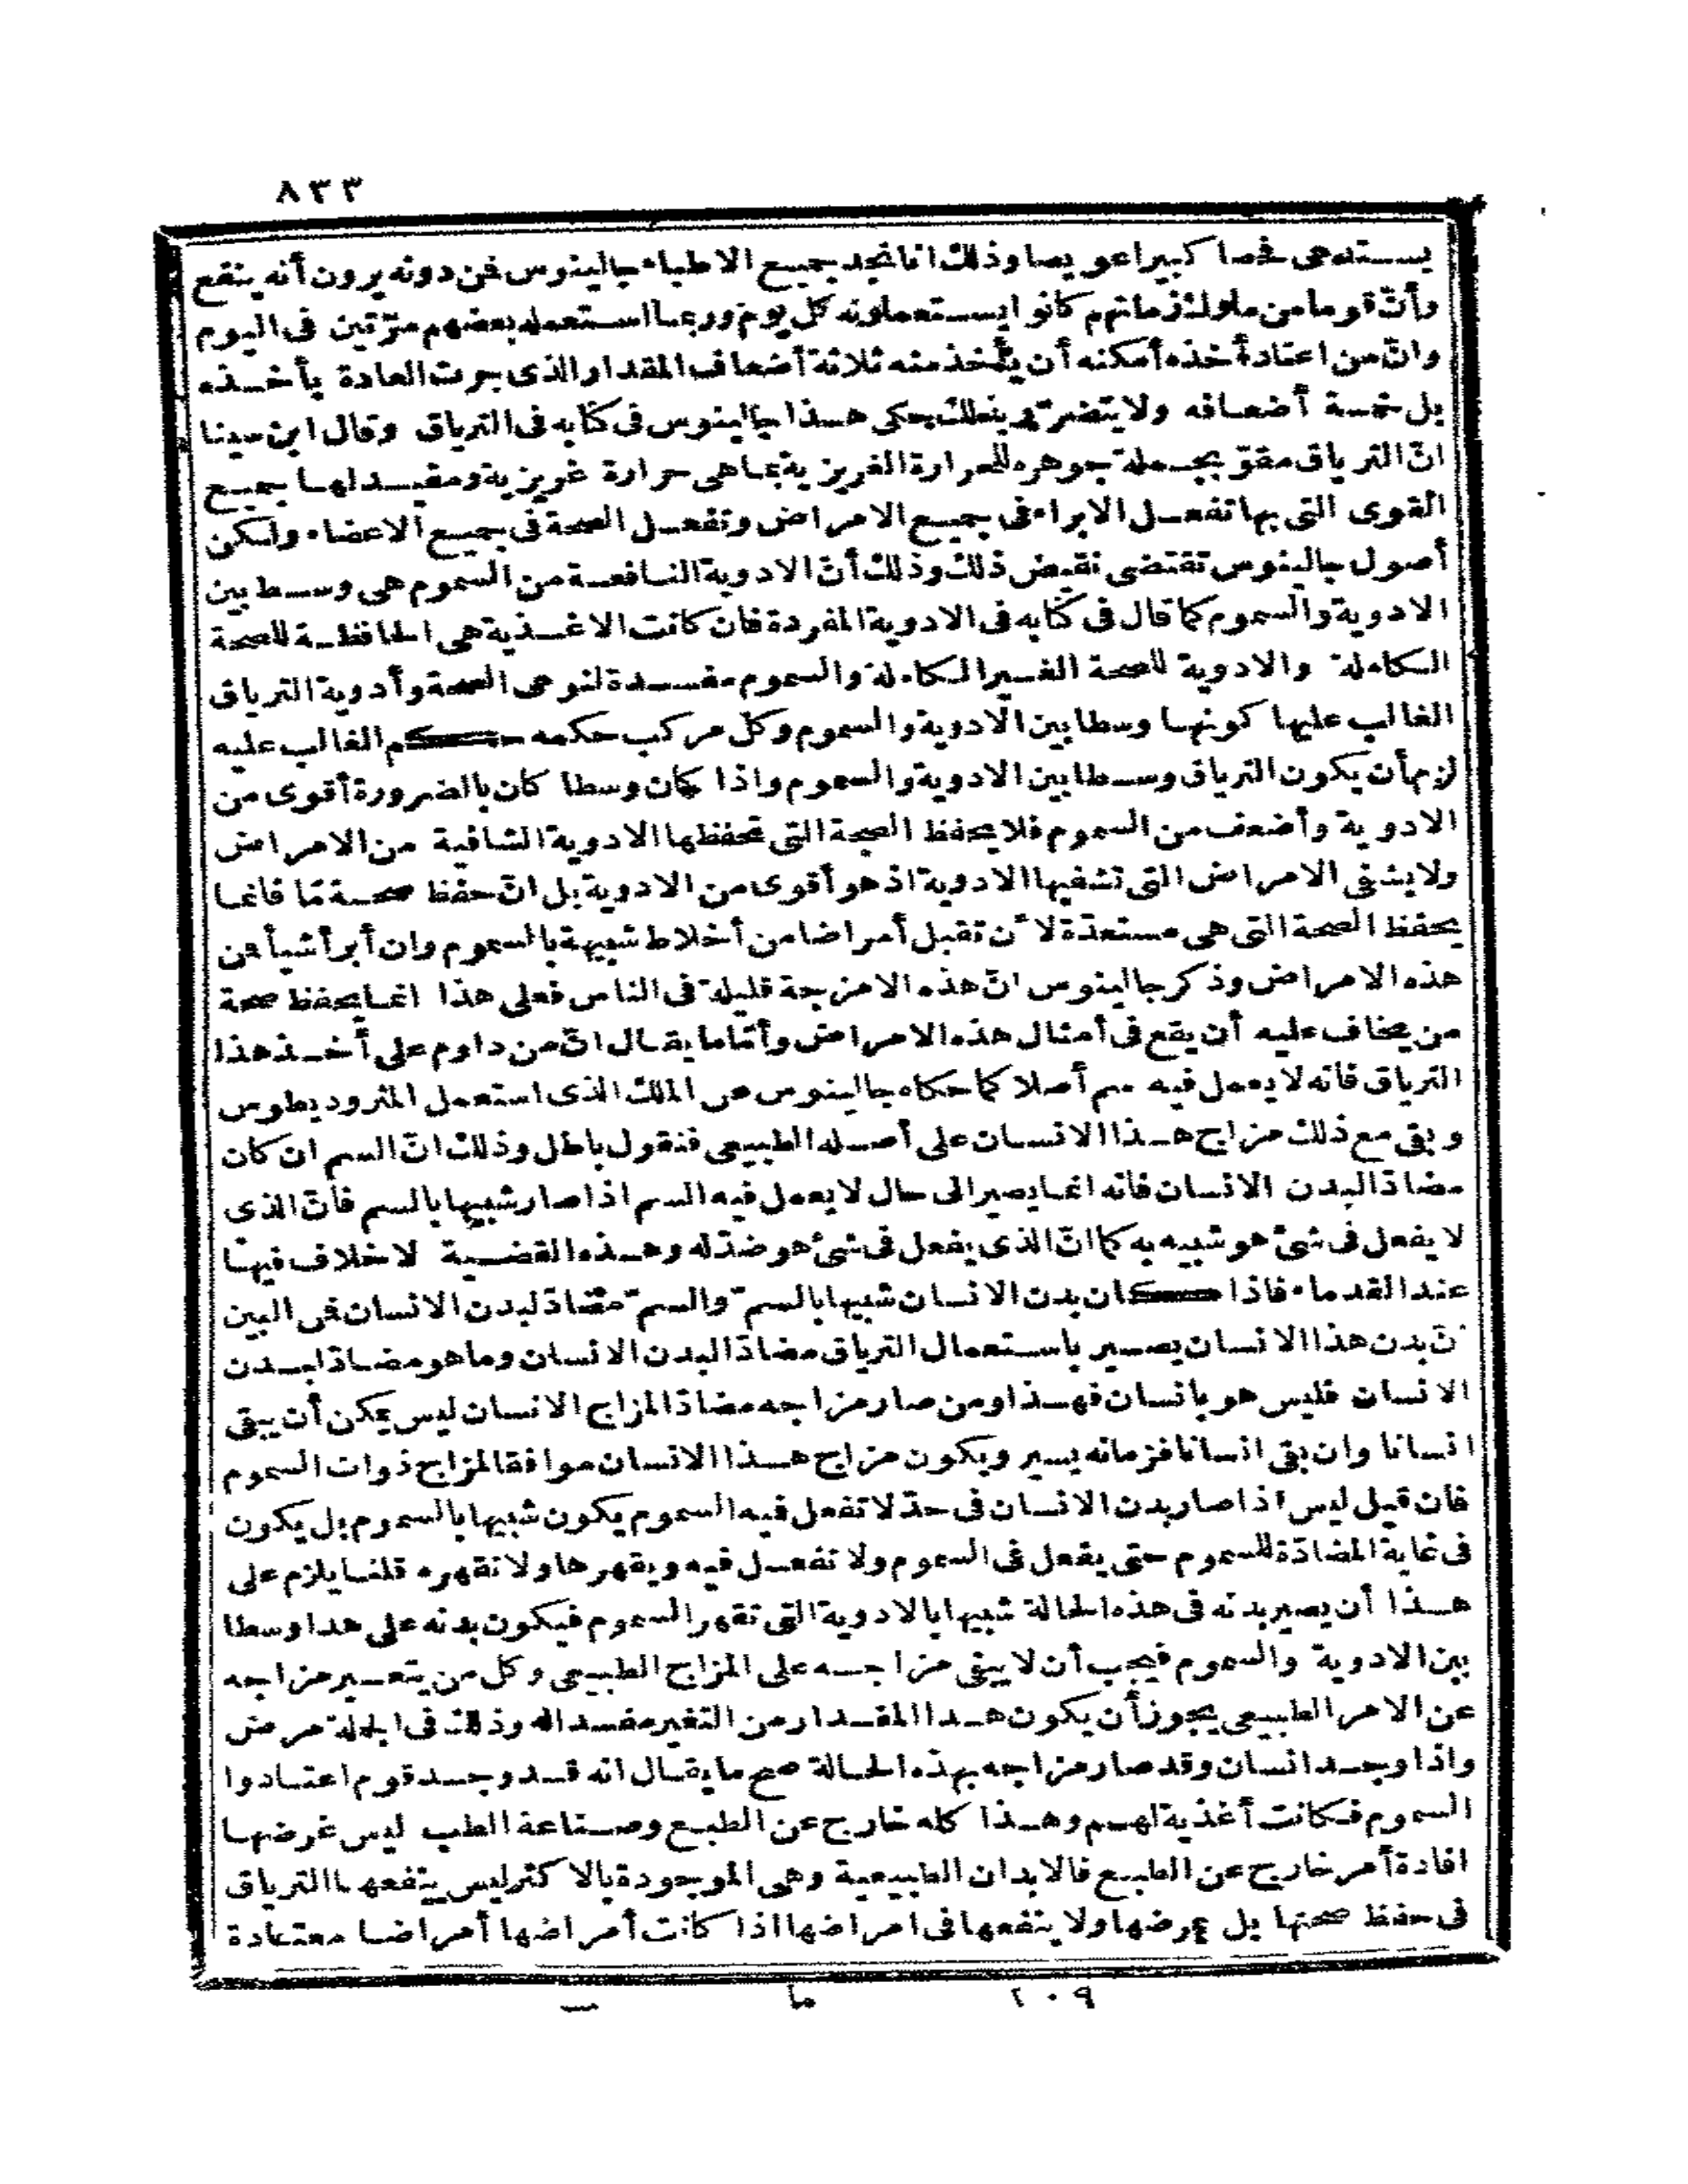 ٨٣٣
يستدعى فحصا كبيرا عويصا وذلك انا نجد جميع الاطباء جالينوس فمن دونه يرون أنه ينفع
وأنّ قوما من ملوك زمانهم كانوا يستعملونه كل يوم وربما استعمله بعضهم مرّتين فى اليوم
وانّ من اعتاد أخذه أمكنه أن يأخذ منه ثلاثة أضعاف المقدار الذى جرت العادة بأخذه
بل خمسة أضعافه ولا يتضرّر بذلك حكى هذا جالينوس فى كتابه فى الترياق وقال ابن سينا
انّ الترياق مقوّ بجملة جوهره للحرارة الغريزية بما هى حرارة غريزية ومفيد لها جميع
القوى التى بها تفعل الابراء فى جميع الامراض وتفعل الصحة فى جميع الاعضاء ولكن
أصول جالينوس تقتضى نقيض ذلك وذلك أنّ الادوية النافعة من السموم هى وسط بين
الادوية والسموم كما قال فى كتابه فى الادوية المفردة فان كانت الاغذية هى الحافظة للصحة
الكاملة والادوية للصحة الغير الكاملة والسموم مفسدة لنوعى الصحة وأدوية الترياق
الغالب عليها كونها وسطا بين الادوية والسموم وكل مركب حكمه حكم الغالب عليه
لزم أن يكون الترياق وسطا بين الادوية والسموم واذا كان وسطا كان بالضرورة أقوى من
الادوية وأضعف من السموم فلا يحفظ الصحة التى تحفظها الادوية الشافية من الامراض
ولا يشفى الامراض التى تشفيها الادوية اذ هو أقوى من الادوية بل انّ حفظ صحة مّا فانما
يحفظ الصحة التى هى مستعدّة لأن تقبل أمراضا من أخلاط شبيهة بالسموم وان أبرأ شيأ من
هذه الامراض وذكر جالينوس انّ هذه الامزجة قليلة فى الناس فعلى هذا انما يحفظ صحة
من يخاف عليه أن يقع فى أمثال هذه الامراض وأمّا ما يقال انّ من داوم على أخذ هذا
الترياق فانه لا يعمل فيه سم أصلا كما حكاه جالينوس عن الملك الذى استعمل المثروديطوس
وبقى مع ذلك مزاج هذا الانسان على أصله الطبيعى فنقول باطل وذلك انّ السم ان كان
مضادّا لبدن الانسان فانه انما يصير الى حال لا يعمل فيه السم اذا صار شبيها بالسم فانّ الذى
لا يفعل فى شئ هو شبيه به كما انّ الذى يفعل فى شئ هو ضدّ له وهذه القضية لا خلاف فيها
عند القدماء فاذا كان بدن الانسان شبيها بالسمّ والسمّ مضادّ لبدن الانسان فمن البين
انّ بدن هذا الانسان يصير باستعمال الترياق مضادّا لبدن الانسان وما هو مضادّ لبدن
الانسان فليس هو بانسان فهذا ومن صار مزاجه مضادّا لمزاج الانسان ليس يمكن أن يبقى
انسانا وان بقى انسانا فزمانه يسير ويكون مزاج هذا الانسان موافقا لمزاج ذوات السموم
فان قيل ليس اذا صار بدن الانسان فى حدّ لا تفعل فيه السموم يكون شبيها بالسموم بل يكون
فى غاية المضادّة للسموم حتى يفعل فى السموم ولا تفعل فيه ويقهرها ولا تقهره قلنا يلزم على
هذا أن يصير بدنه فى هذه الحالة شبيها بالادوية التى تقهر السموم فيكون بدنه على هذا وسطا
بين الادوية والسموم فيجب أن لا يبقى مزاجه على المزاج الطبيعى وكل من يتغير مزاجه
عن الامر الطبيعى يجوز أن يكون هذا المقدار من التغير مفسدا له وذلك فى الجملة مرض
واذا وجد انسان وقد صار مزاجه بهذه الحالة صح ما يقال انه قد وجد قوم اعتادوا
السموم فكانت أغذية لهم وهذا كله خارج عن الطبع وصناعة الطب ليس غرضها
افادة أمر خارج عن الطبع فالابدان الطبيعية وهى الموجودة بالاكثر ليس ينفعها الترياق
فى حفظ صحتها بل يمرضها ولا ينفعها فى امراضها اذا كانت أمراضها أمراضا معتادة
١٠٩ ما